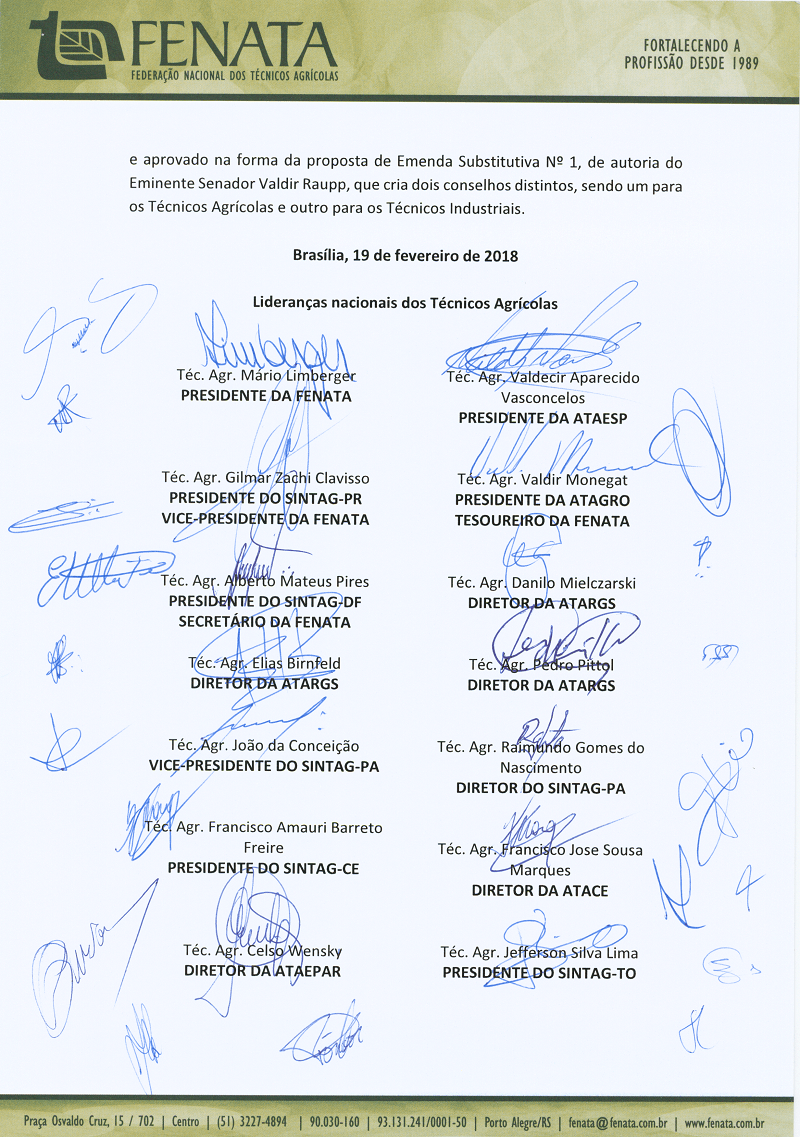 FENATA
FEDERAÇÃO NACIONAL DOS TÉCNICOS AGRÍCOLAS
FORTALECENDO A
PROFISSÃO DESDE 1989
e aprovado na forma da proposta de Emenda Substitutiva Nº 1, de autoria do
Eminente Senador Valdir Raupp, que cria dois conselhos distintos, sendo um para
os Técnicos Agrícolas e outro para os Técnicos Industriais.
Brasília, 19 de fevereiro de 2018
Lideranças nacionais dos Técnicos Agrícolas
Limberger
Téc. Agr. Mário Limberger
PRESIDENTE DA FENATA
Téc. Agr. Valdecir Aparecido
Vasconcelos
PRESIDENTE DA ATAESP
Téc. Agr. Gilmar Zachi Clavisso
PRESIDENTE DO SINTAG-PR
VICE-PRESIDENTE DA FENATA
Téc. Agr. Valdir Monegat
PRESIDENTE DA ATAGRO
TESOUREIRO DA FENATA
Téc. Agr. Alberto Mateus Pires
PRESIDENTE DO SINTAG-DF
SECRETÁRIO DA FENATA
Téc. Agr. Danilo Mielczarski
DIRETOR DA ATARGS
Téc. Agr. Elias Birnfeld
DIRETOR DA ATARGS
Téc. Agr. Pedro Pittol
DIRETOR DA ATARGS
Téc. Agr. João da Conceição
VICE-PRESIDENTE DO SINTAG-PA
Téc. Agr. Raimundo Gomes do
Nascimento
DIRETOR DO SINTAG-PA
Téc. Agr. Francisco Amauri Barreto
Freire
PRESIDENTE DO SINTAG-CE
Téc. Agr. Francisco Jose Sousa
Marques
DIRETOR DA ATACE
Téc. Agr. Celso Wensky
DIRETOR DA ATAEPAR
Téc. Agr. Jefferson Silva Lima
PRESIDENTE DO SINTAG-TO
Praça Osvaldo Cruz, 15 / 702 | Centro | (51) 3227-4894 | 90.030-160 | 93.131.241/0001-50 | Porto Alegre/RS | fenata@fenata.com.br | www.fenata.com.br